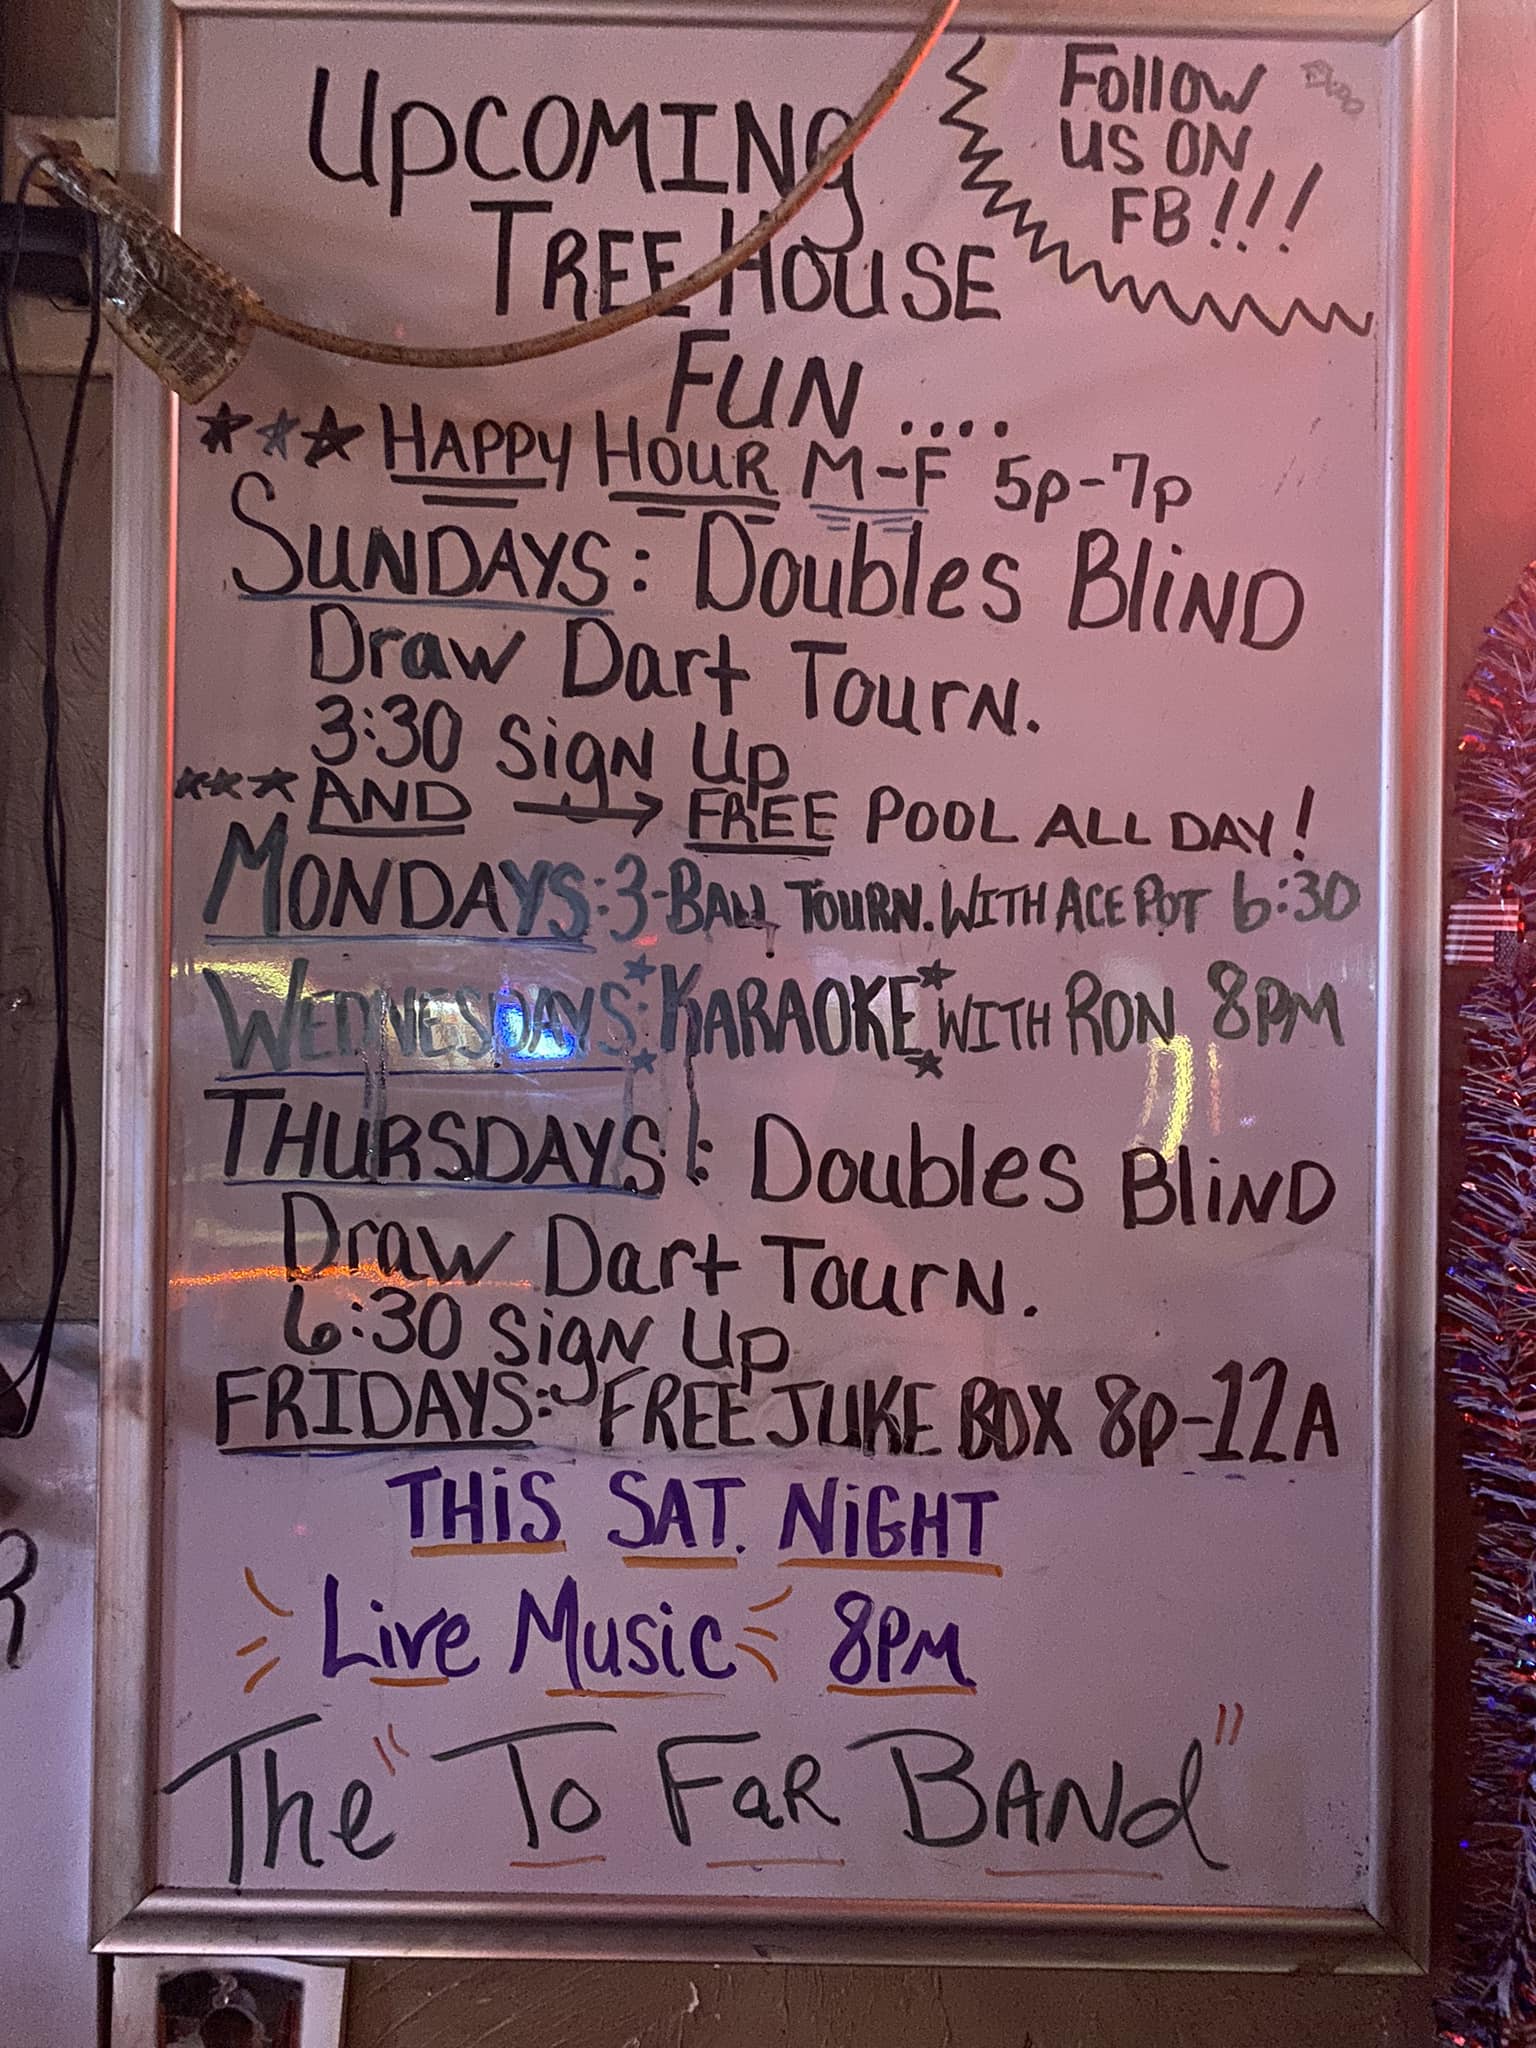 Upcoming
Tree House
Fun ....
Follow
us on
FB!!!
*** Happy Hour M-F 5p-7p
Sundays: Doubles Blind
Draw Dart Tourn.
3:30 Sign Up
*** AND → FREE POOL ALL DAY!
Mondays: 3-Ball Tourn. With Ace Pot 6:30
Wednesdays: *Karaoke* with Ron 8PM
Thursdays: Doubles Blind
Draw Dart Tourn.
6:30 Sign Up
FRIDAYS: FREE JUKE BOX 8p-12A
THIS SAT. NIGHT
Live Music 8PM
The "To Far Band"